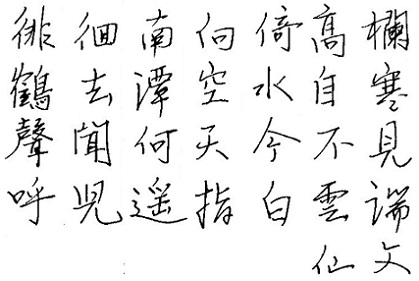 徘徊南向倚高欄
鶴去潭空水自寒
聲聞何天今不見
呼児遥指白雲端
仙文